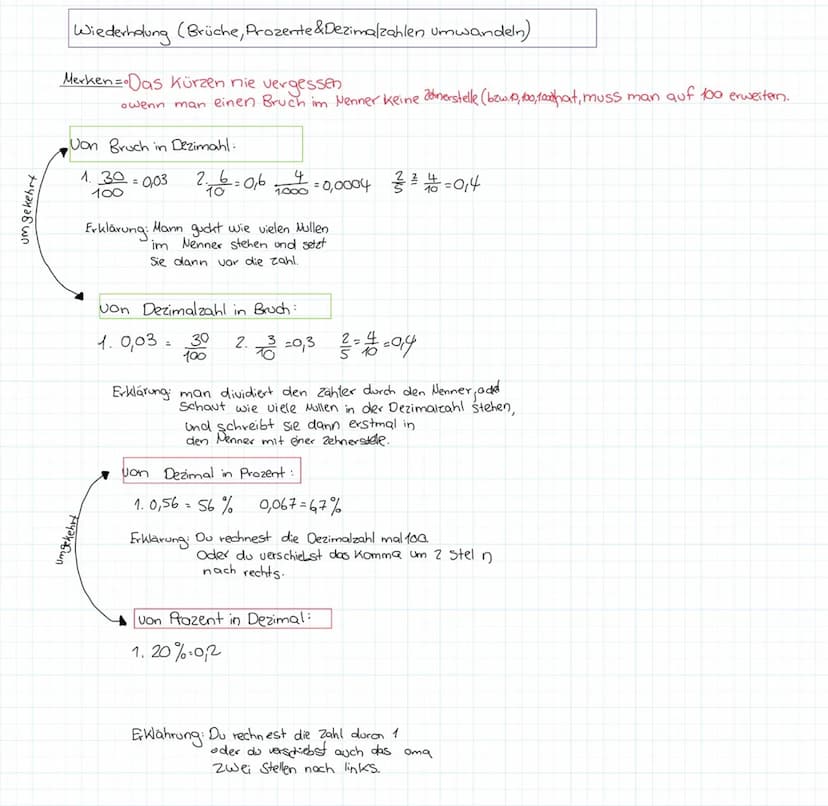 Wiederholung (Brüche, Prozente & Dezimalzahlen umwandeln)
Merken=•Das Kürzen nie vergessen
•wenn man einen Bruch im Nenner keine Zehnerstelle (bzw. 10, 100, 1000) hat, muss man auf 100 erweitern.
von Bruch in Dezimahl:
1. 30/100 = 0,03 2. 6/10 = 0,6 4/1000 = 0,0004 2/5 = 4/10 = 0,4
umgekehrt
Erklärung: Mann guckt wie vielen Nullen
im Nenner stehen und setzt
sie dann vor die Zahl.
von Dezimalzahl in Bruch:
1. 0,03 = 30/100 2. 3/10 = 0,3 2/5 = 4/10 = 0,4
Erklärung: man dividiert den Zähler durch den Nenner,
schaut wie viele Nullen in der Dezimalzahl stehen,
und schreibt sie dann erstmal in
den Nenner mit einer Zehnerstelle.
von Dezimal in Prozent:
1. 0,56 = 56 % 0,067 = 6,7 %
umgekehrt
Erklärung: Du rechnest die Dezimalzahl mal 100.
Oder du verschiebst das Komma um 2 Stel n
nach rechts.
von Prozent in Dezimal:
1. 20 % = 0,2
Erklährung: Du rechnest die Zahl durch 1
oder du verschiebst auch das oma
zwei Stellen nach links.